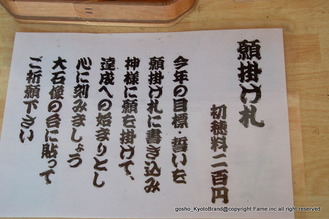 願掛け札
初穂料二百円
今年の目標・誓いを
願掛け札に書き込み
神様に願を掛けて、
達成への始まりとし
心に刻みましょう
大石像の台に貼って
ご祈願下さい
gosho_KyotoBrand@copyright.Fame.inc all rights reserved.